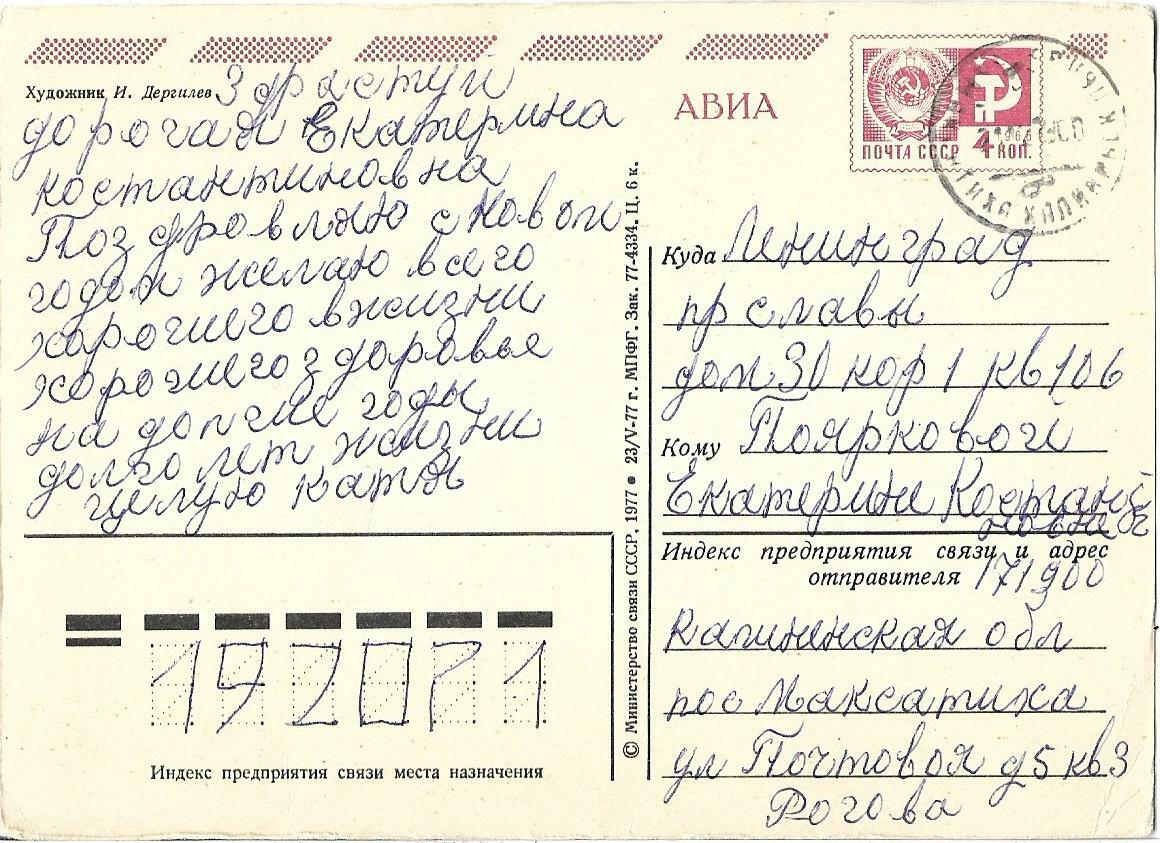 Художник И. Дергилев
Здраствуй
дорогая Екатерина
костантиновна
Поздровляю с новом
годом желаю всего
хорошего вжизни
хорошего здоровье
на долгие годы
долго лет жизни
целую катя
АВИА
ПОЧТА СССР 4 КОП.
Куда Ленинград
пр славы
дом 30 кор 1 кв 106
Кому Поярковой
Екатерини Костанти
новне
Индекс предприятия связи и адрес
отправителя 171900
Калиненская обл
пос Максатиха
ул Почтовоя д5 кв3
Рогова
192071
Индекс предприятия связи места назначения
© Министерство связи СССР, 1977 ● 23/V-77 г. МПФГ. Зак. 77-4334. Ц. 6 к.